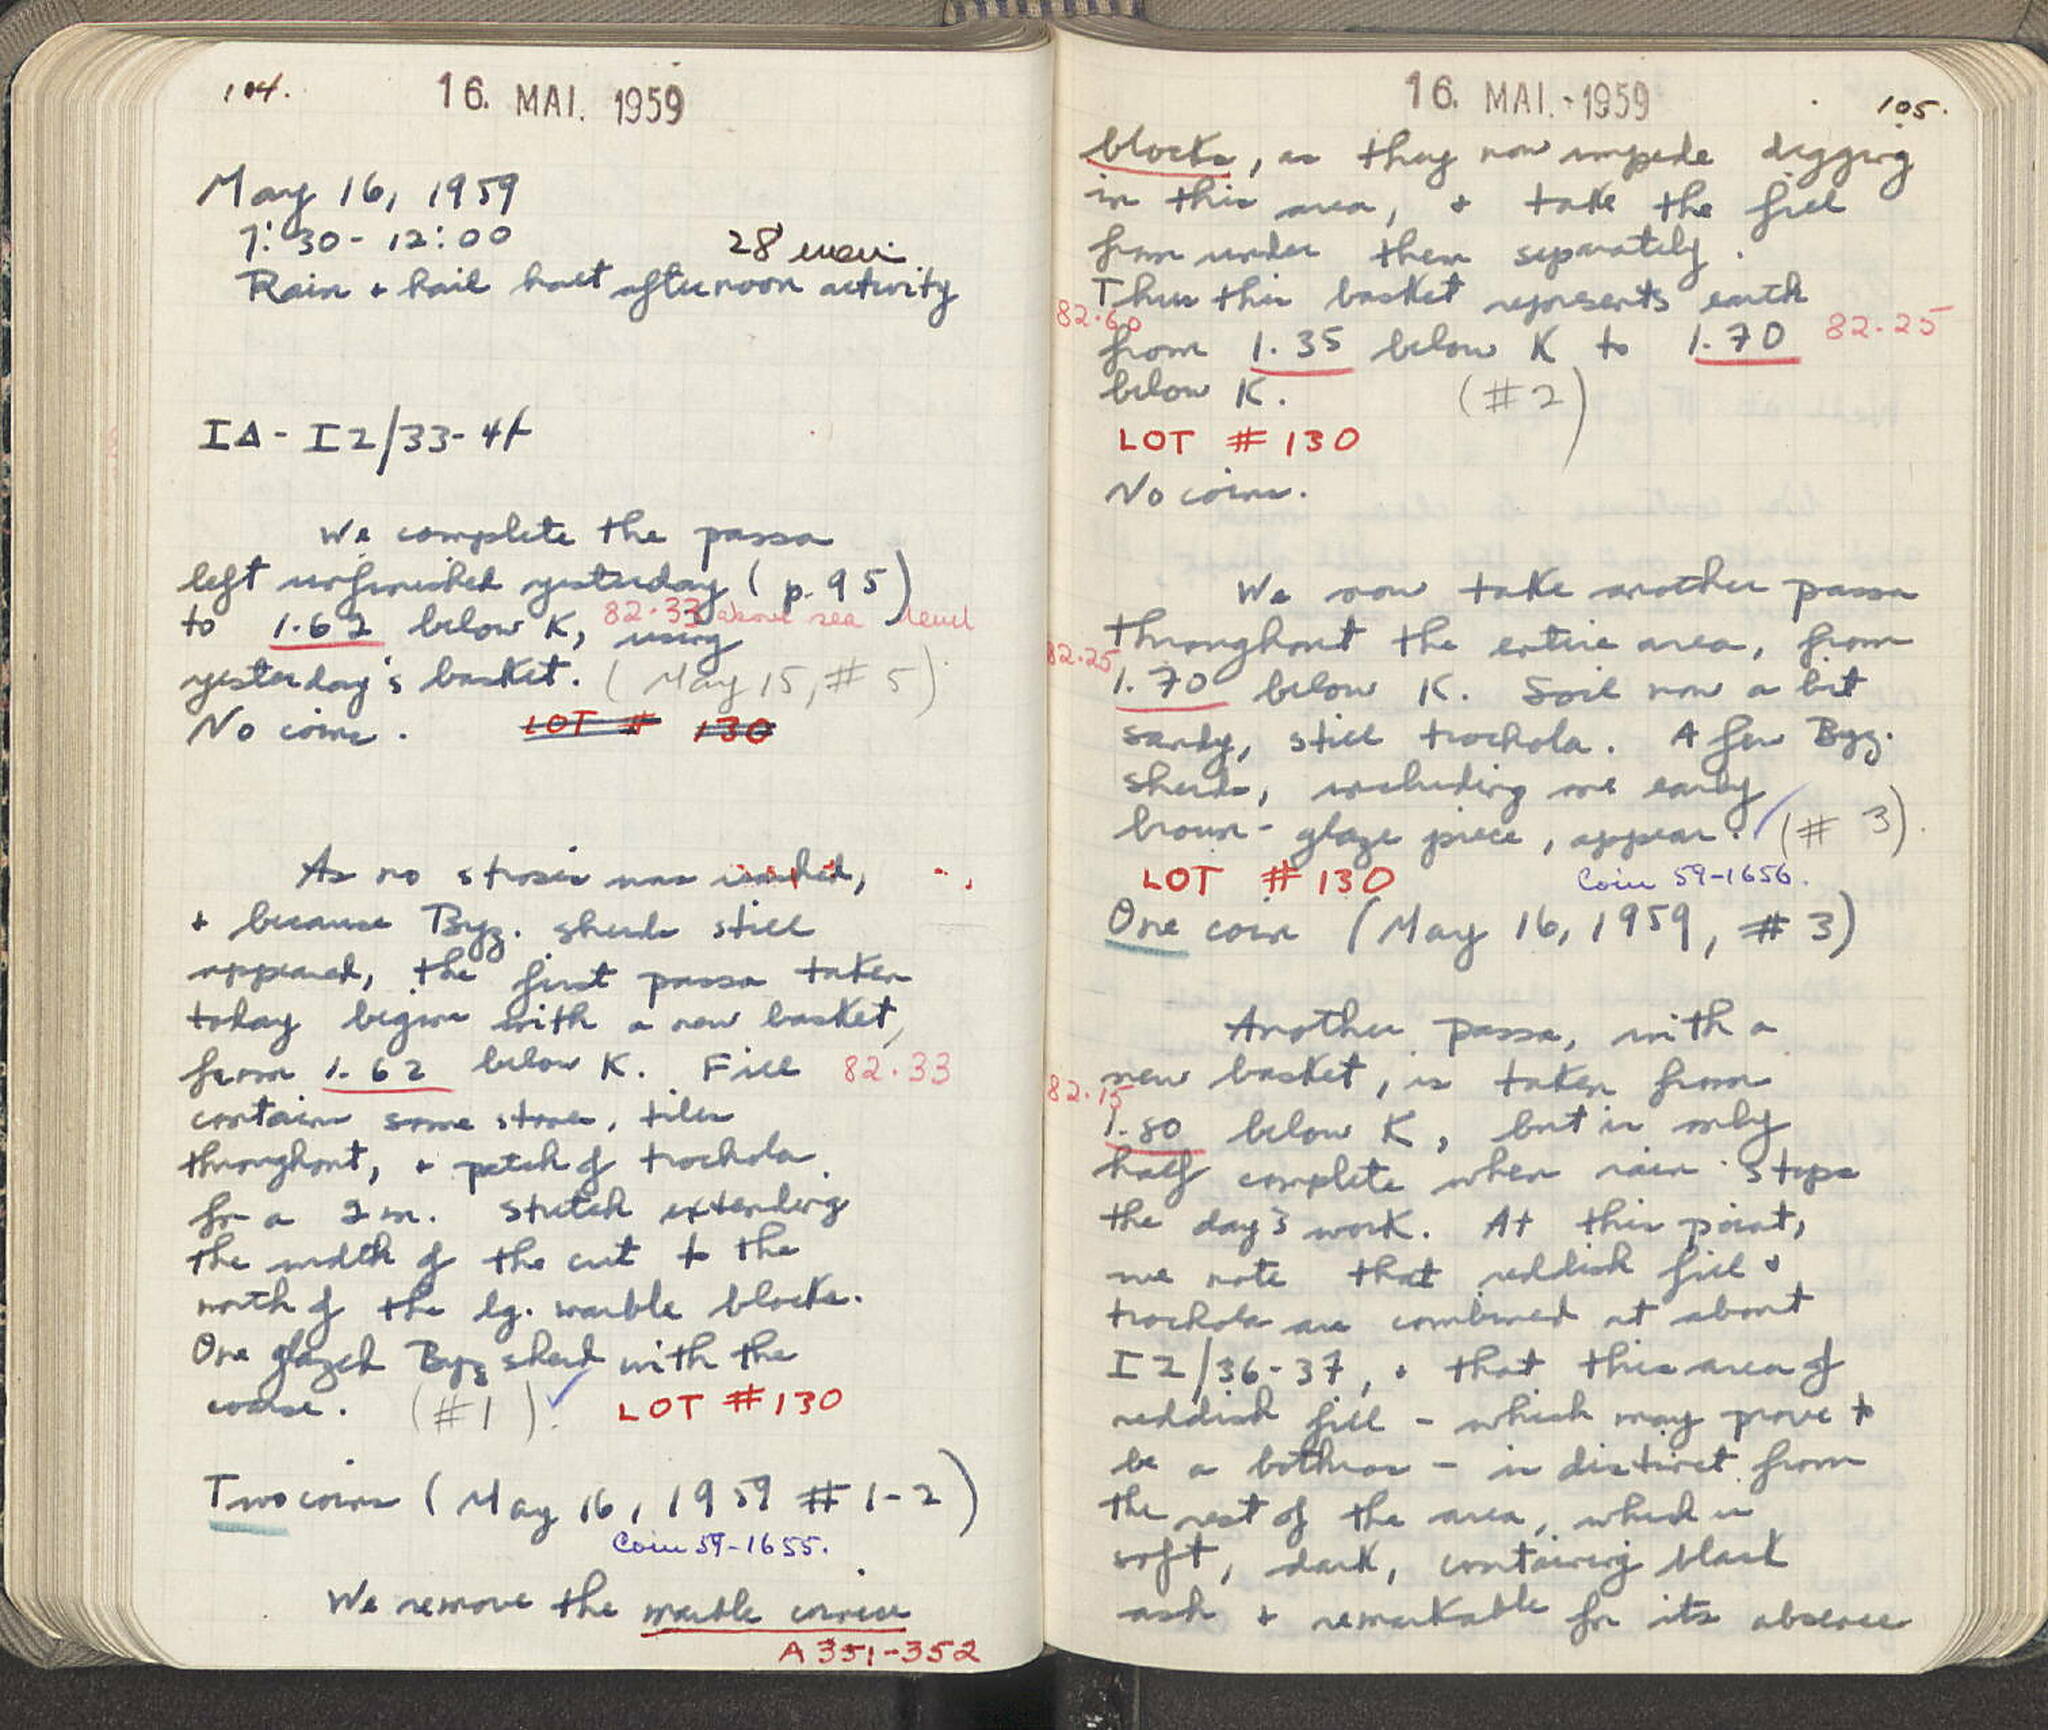 104.
16. MAI. 1959
May 16, 1959
7:30-12:00
28 men
Rain + hail halt afternoon activity
IΔ - IZ/33-41
We complete the passa
left unfinished yesterday (p. 95)
to 1.62 below K, 82.33 above sea level using
yesterday's basket. (May 15, #5)
No coins. LOT # 130
As no strosis was reached,
+ because Byz. sherds still
appeared, the first passa taken
today begins with a new basket,
from 1.62 below K. Fill 82.33
contains some stones, tiles
throughout, + patch of trochola
for a 2 m. stretch extending
the width of the cut to the
north of the lg. marble blocks.
One glazed Byz sherd with the
coarse. (#1) ✓ LOT #130
Two coins (May 16, 1959 #1-2)
Coin 59-1655.
We remove the marble cornice
A 351-352
16. MAI. 1959
105.
blocks, as they now impede digging
in this area, + take the fill
from under them separately.
Thus this basket represents earth
82.60 82.25
from 1.35 below K to 1.70
below K. (#2)
LOT # 130
No coins.
We now take another passa
throughout the entire area, from
82.25
1.70 below K. Soil now a bit
sandy, still trochola. A few Byz.
sherds, including one early
brown-glaze piece, appear. ✓ (# 3).
LOT # 130 Coin 59-1656.
One coin (May 16, 1959, #3)
Another passa, with a
new basket, is taken from
82.15
1.80 below K, but is only
half complete when rain stops
the day's work. At this point,
we note that reddish fill +
trochola are combined at about
IZ/36-37, + that this area of
reddish fill - which may prove to
be a bothros - is distinct from
the rest of the area, which is
soft, dark, containing black
ash + remarkable for its absence